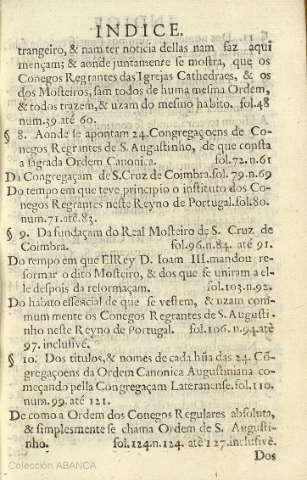 INDICE.
trangeiro, & nam ter noticia dellas nam faz aqui
mençam; & aonde juntamente se mostra, que os
Conegos Regrantes das Igrejas Cathedraes, & os
dos Mosteiros, sam todos de huma mesma Ordem,
& todos trazem, & uzam do mesmo habito. fol.48
num.39.até 60.
§ 8. Aonde se apontam 24. Congregaçoens de Co-
negos Regrantes de S. Augustinho, de que consta
a sagrada Ordem Canonica. fol.72.n.61
Da Congregaçam de S. Cruz de Coimbra. fol.79.n.69
Do tempo em que teve principio o instituto dos Co-
negos Regrantes neste Reyno de Portugal. fol.80.
num.71.até.83.
§ 9. Da fundaçam do Real Mosteiro de S. Cruz de
Coimbra. fol.96.n.84. até 91.
Do tempo em que ElRey D. Ioam III. mandou re-
formar o dito Mosteiro, & dos que se uniram a el-
le despois da reformaçam. fol.103.n.92.
Do habito essẽcial de que se vestem, & uzam com-
mum mente os Conegos Regrantes de S. Augusti-
nho neste Reyno de Portugal. fol.106.n.94.até
97. inclusivé.
§ 10. Dos titulos, & nomes de cada hũa das 24. Cõ-
gregaçoens da Ordem Canonica Augustiniana co-
meçando pella Congregaçam Lateranense. fol.110.
num.99. até 121.
De como a Ordem dos Conegos Regulares absoluta,
& simplesmente se chama Ordem de S. Augusti-
nho. fol.124.n.124. até 127.inclusivè.
Dos
Colección ABANCA